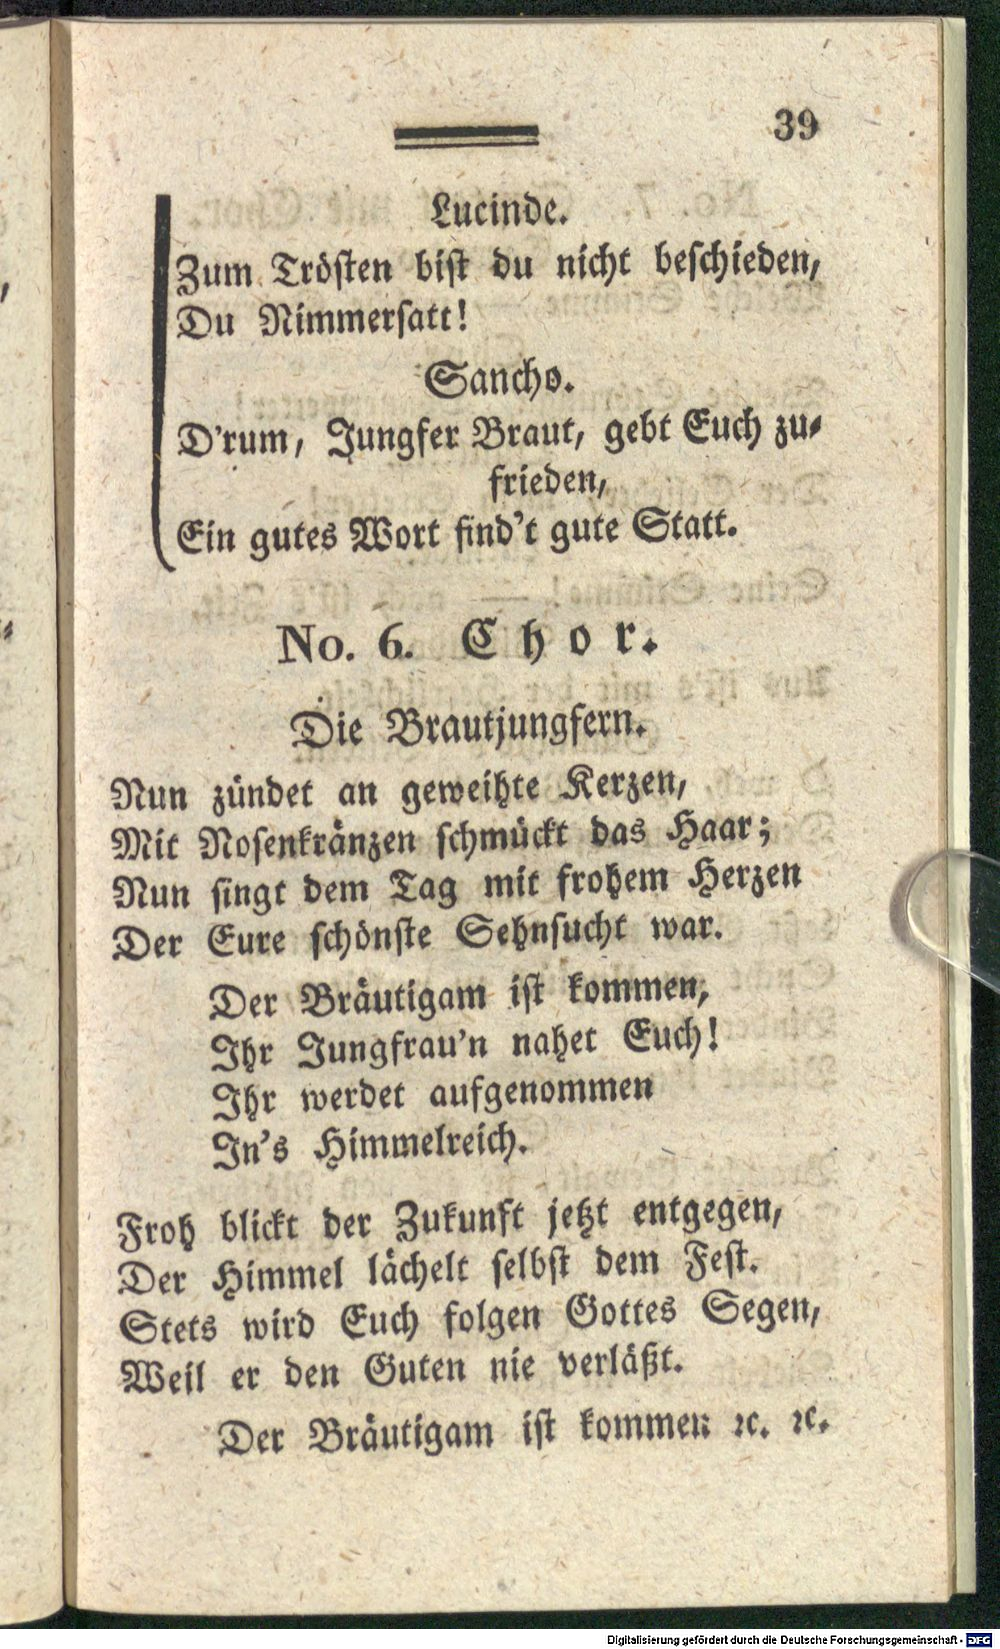 39
Lucinde.
Zum Trösten bist du nicht beschieden,
Du Nimmersatt!
Sancho.
D'rum, Jungfer Braut, gebt Euch zu-
frieden,
Ein gutes Wort find't gute Statt.
No. 6. Chor.
Die Brautjungfern.
Nun zündet an geweihte Kerzen,
Mit Rosenkränzen schmückt das Haar;
Nun singt dem Tag mit frohem Herzen
Der Eure schönste Sehnsucht war.
Der Bräutigam ist kommen,
Ihr Jungfrau'n nahet Euch!
Ihr werdet aufgenommen
In's Himmelreich.
Froh blickt der Zukunft jetzt entgegen,
Der Himmel lächelt selbst dem Fest.
Stets wird Euch folgen Gottes Segen,
Weil er den Guten nie verläßt.
Der Bräutigam ist kommen ꝛc. ꝛc.
Digitalisierung gefördert durch die Deutsche Forschungsgemeinschaft - DFG